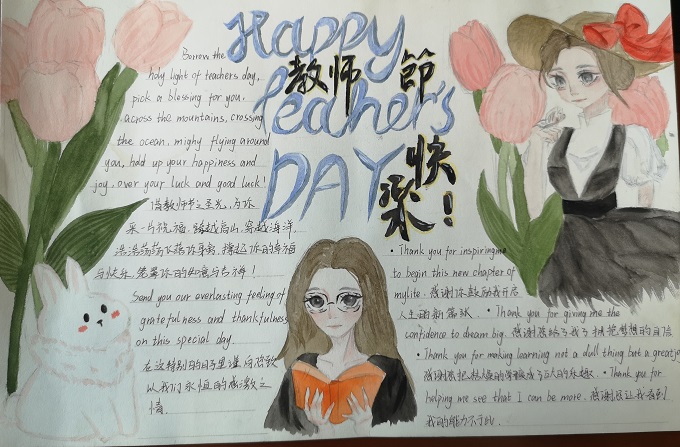 Happy
Teacher's
DAY
教师 節
快
乐!
Borrow the
holy light of teachers day,
pick a blessing for you,
across the mountains, crossing
the ocean, mighy flying around
you, hold up your happiness and
joy, over your luck and good luck!
借教师节之圣光,为你
采一片祝福,跨越高山,穿越海洋,
浩浩荡荡飞落你身旁,撑起你的幸福
与快乐,笼罩你的如意与吉祥!
Send you our everlasting feeling of
gratefulness and thankfulness
on this special day.
在这特别的日子里道向您致
以我们永恒的感激之
情.
• Thank you for inspiring me
to begin this new chapter of
mylite. 感谢你鼓励我开启
人生的新篇章. • Thank you for giving me the
confidence to dream big. 感谢您给了我了拥抱梦想的自信
• Thank you for making learning not a dull thing but a great joy
感谢您把枯燥的学习成了巨大的乐趣. • Thank you for
helping me see that I can be more. 感谢您让我看到
我的能力不于此.